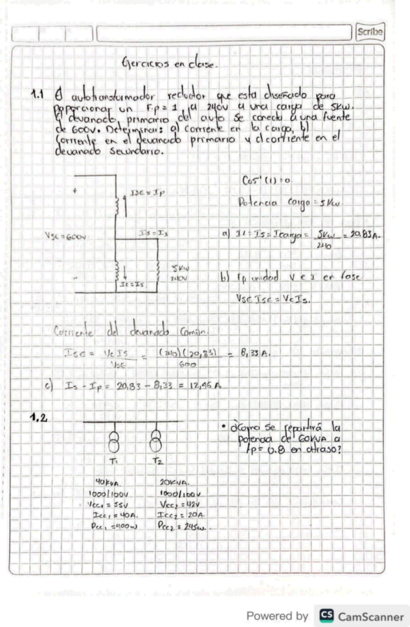 Scribe
Ejercicios en clase.
1.1 El autotransformador reductor que esta diseñado para
proporcionar un Fp = 1, a 240v a una carga de 5kw.
El devanado primario del auto se conecta a una fuente
de 600v. Determinar: a) corriente en la carga, b)
Corriente en el devanado primario y c) corriente en el
devanado secundario.
+
Isc = Ip
Vsc = 600v
Is = I2
5kw
240v
-
Cos⁻¹(1) = 0
Potencia carga = 5kw
a) I1 = Is = Icarga = 5kw / 240 = 20.83A.
b) fp unidad V e I en fase
Vsc Isc = Vc Is.
Corriente del devanado Común
Isc = Vc Is / Vsc = (240)(20,83) / 600 = 8,33 A.
c) Is - Ip = 20,83 - 8,33 = 12,45 A
1.2
T1 T2
• ¿Como se repartirá la
potencia de 60KVA a
fp = 0.8 en atraso?
40KVA. 20KVA.
1000/100v 1000/100v
Vcc1 = 55v Vcc2 = 42v
Icc1 = 40A. Icc2 = 20A.
Pcc1 = 400w Pcc2 = 245w.
Powered by CS CamScanner